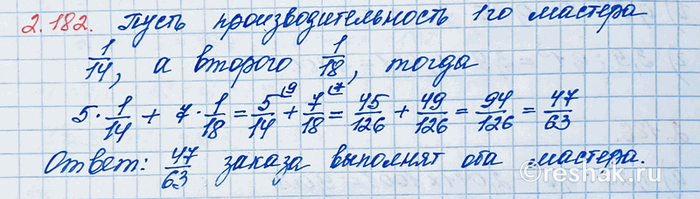 2.182. Пусть производительность 1го мастера
1/14, а второго 1/18, тогда
5 · 1/14 + 7 · 1/18 = 5/14 (9 + 7/18 (7 = 45/126 + 49/126 = 94/126 = 47/63
Ответ: 47/63 заказа выполнят оба мастера.
©reshak.ru